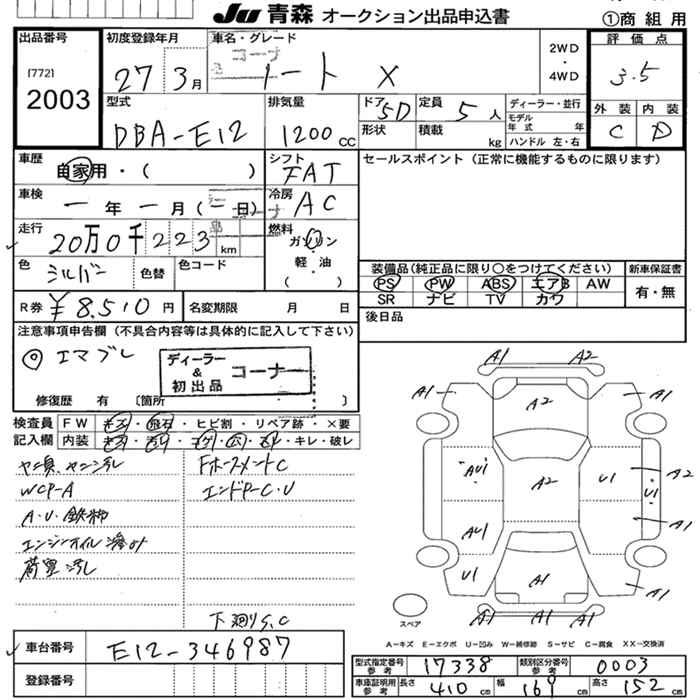 JU 青森 オークション出品申込書
①商組用
出品番号
(772)
2003
初度登録年月
27 3月
車名・グレード
コーナー
ノート X
2WD
・
4WD
評価点
3.5
外装 内装
C D
型式
DBA-E12
排気量
1200 CC
ドア 5D
定員 5人
形状
積載 kg
ディーラー・並行
モデル年式 年
ハンドル 左・右
車歴
自家用・( )
シフト
FAT
セールスポイント(正常に機能するものに限ります)
車検
— 年 — 月 (— 日)
冷房
AC
走行
20万0千223 km
燃料
ガソリン
軽・油
( )
色
シルバー
色替
色コード
装備品(純正品に限り○をつけてください)
PS PW ABS エアB AW
SR ナビ TV カワ
新車保証書
有・無
R券 ¥8.510円
名変期限 月 日
後日品
注意事項申告欄(不具合内容等は具体的に記入して下さい)
◎ エマブレ
ディーラー
&
初出品
コーナー
修復歴 有 〔箇所 〕
検査員
記入欄
FW キズ・飛石・ヒビ割・リペア跡・×要
内装 キズ・汚り・コゲ・穴・スレ・キレ・破レ
ヤニ臭、ヤニ汚レ
WCP-A
A・U・鉄粉
エンジンオイル滲み
荷室汚レ
FホースメントC
エンドP-C・U
下廻りS,C
A1 A2
A1 A2 A1
AU1 A2 U1 U1 A2
AU1 A1
U1 A1 A1
A1 A1
スペア
A−キズ E−エクボ U−凹み W−補修跡 S−サビ C−腐食 XX−交換済
車台番号
E12-346987
登録番号
型式指定番号
参考
17338
類別区分番号
参考
0003
車庫証明用
参考
長さ 410 cm 幅 169 cm 高さ 152 cm